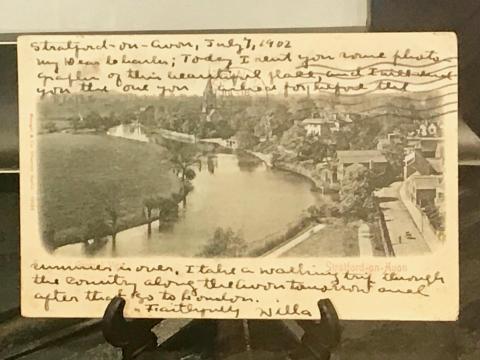 Stratford-on-Avon, July 7, 1902
My Dear Charles; Today I sent you some photo-
graphs of this beautiful place, and I will send
you that one you asked for before the
summer is over. I take a walking trip through
the country along the Avon tomorrow and
after that go to London.
Faithfully Willa
Stratford-on-Avon